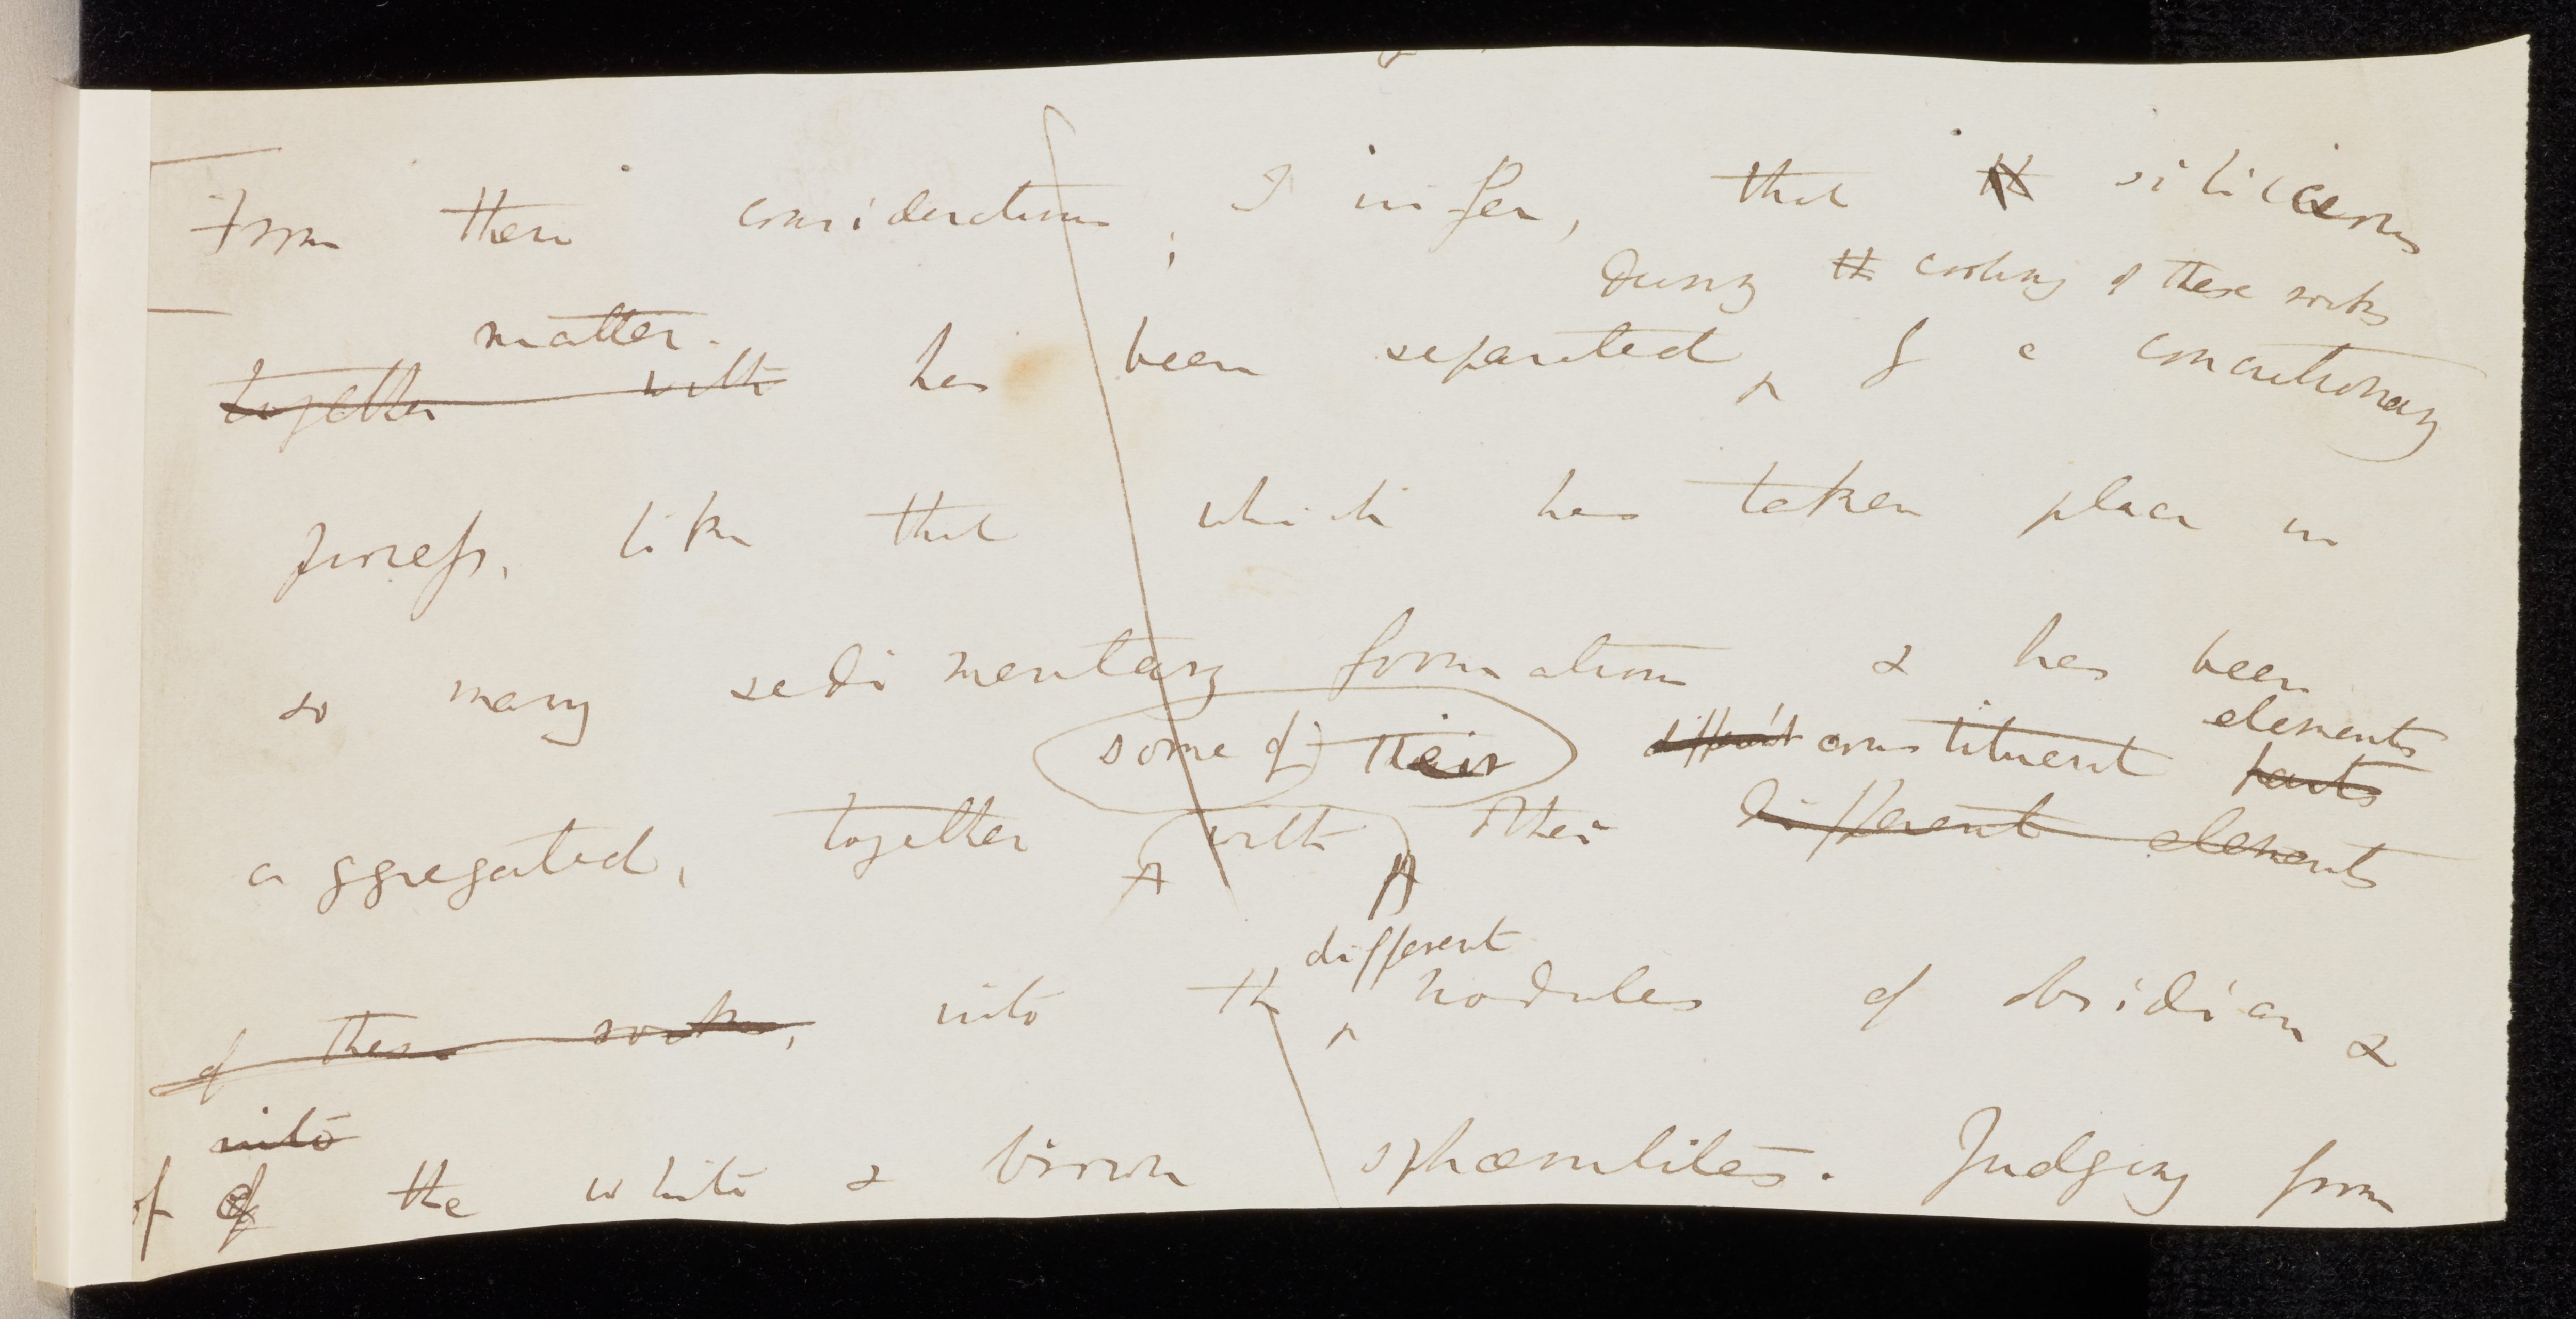 From these considerations, I infer, that th siliceous
during the cooling of these rocks
matter.
together with has been separated by a concretionary
process, like that which has taken place in
so many sedimentary formations & has been
elements
some of their different constituent parts
aggregated, together with other different elements
different
of these rocks, into the nodules of obsidian &
into
of of the white & brown sphærulites. Judging from